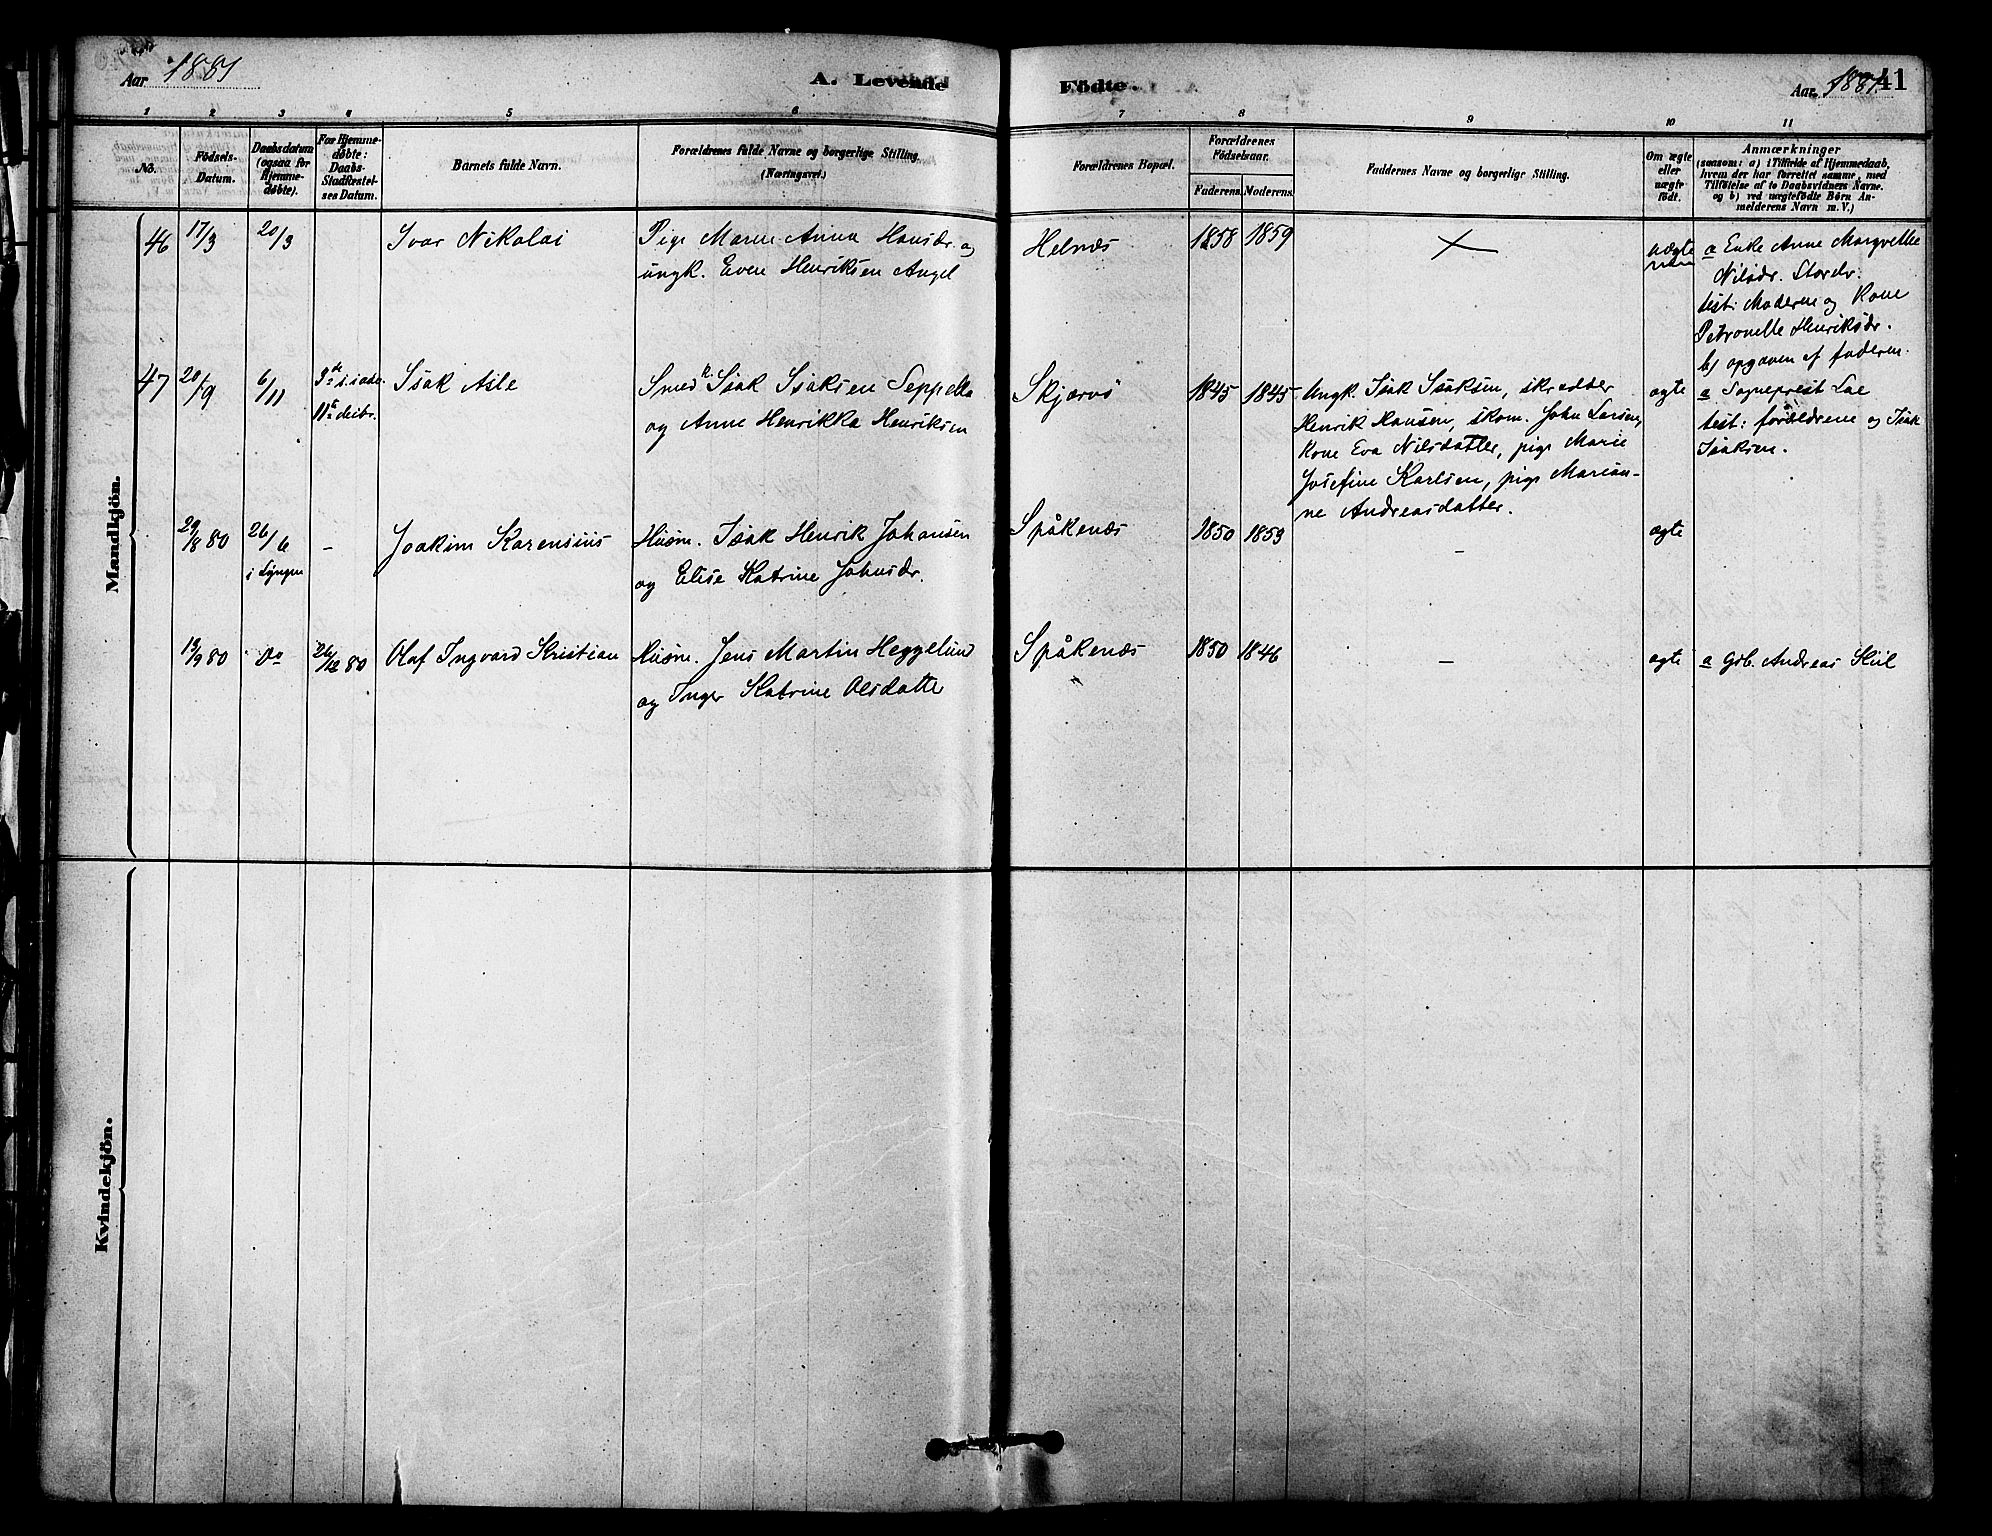 Aar 1881
A. Levende
Födte.
Aar 1881.
41
1 2 3 4 5 6 7 8 9 10 11
No.
Födsels-
Datum.
Daabsdatum
(ogsaa for
Hjemme-
döbte).
For Hjemme-
döbte:
Daabs-
Stadfæstel-
ses Datum.
Barnets fulde Navn.
Forældrenes fulde Navne og borgerlige Stilling.
(Næringsvei.)
Forældrenes Bopæl.
Forældrenes
Födselsaar.
Faderens. Moderens.
Faddernes Navne og borgerlige Stilling.
Om ægte
eller
uægte
födt.
Anmærkninger
(saasom: a) i Tilfælde af Hjemmedaab,
hvem der har forrettet samme, med
Tilföielse af to Daabsvidners Navne.
og b) ved uægtefödte Börn An-
melderens Navn m.V.)
Mandkjön.
46 17/3 20/3 Ivar Nikolai
Pige Maren Anna Hansdr. og
ungk. Even Henriksen Angel
Helnæs 1858 1859 uægte
a Enke Anne Margrethe
Nilsdr. Stordr.
test: Moderen og Kone
Petronelle Henriksdr.
b) opgaven af faderen.
47 20/9 6/11
11te decbr.
Isak Aile
Smed Isak Isaksen Seppelka
og Anne Henrikka Henriksen
Skjærvö 1845 1845
Ungk. Isak Isaksen, skrædder
Henrik Hansen, skom. John Larsen,
Kone Eva Nilsdatter, pige Marie
Josefine Karlsen, pige Marian-
ne Andreasdatter.
ægte
a Sogneprest
test: forældrene og Isak
Isaksen.
29/8 80 26/6 -
i Lyngen
Joakim Karensius
Husm. Isak Henrik Johansen
og Elise Katrine Johnsdr.
Spåkenæs 1850 1859 - ægte
13/9 80 Do 26/12 80 Olaf Ingvard Kristian
Husm. Jens Martin Heggelund
og Inger Katrine Olsdatter
Spåkenæs 1850 1846 - ægte
a Gsb. Andreas Kiil
Kvindekjön.